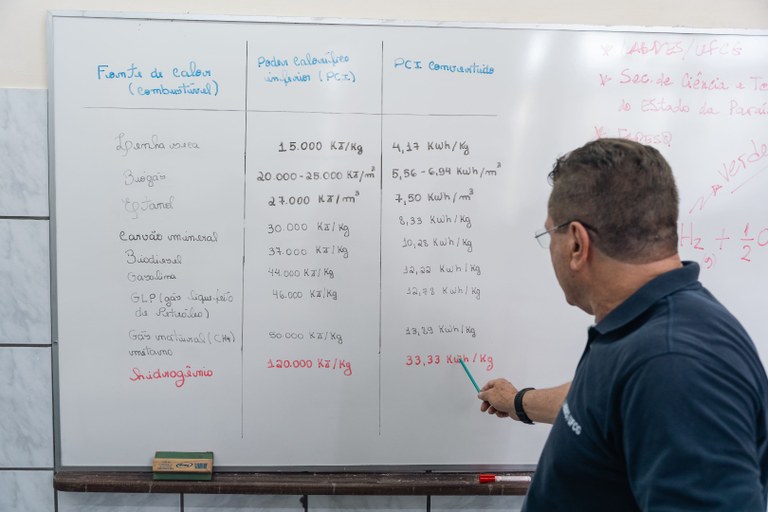 Fonte de calor
(combustível)
Poder calorífico
inferior (PCI)
PCI convertido
Lenha seca
15.000 KJ/Kg
4,17 Kwh/Kg
Biogás
20.000-25.000 KJ/m³
5,56 - 6,94 Kwh/m³
Etanol
27.000 KJ/m³
7,50 Kwh/m³
Carvão mineral
30.000 KJ/Kg
8,33 Kwh/Kg
Biodiesel
37.000 KJ/Kg
10,28 Kwh/Kg
Gasolina
44.000 KJ/Kg
12,22 Kwh/Kg
GLP (gás liquefeito
de Petróleo)
46.000 KJ/Kg
12,78 Kwh/Kg
Gás natural (CH4)
metano
50.000 KJ/Kg
13,89 Kwh/Kg
hidrogênio
120.000 KJ/Kg
33,33 Kwh/Kg
/UFCG
Sec. de Ciência e
do Estado da
verde
H₂ + 1/2
UFCG